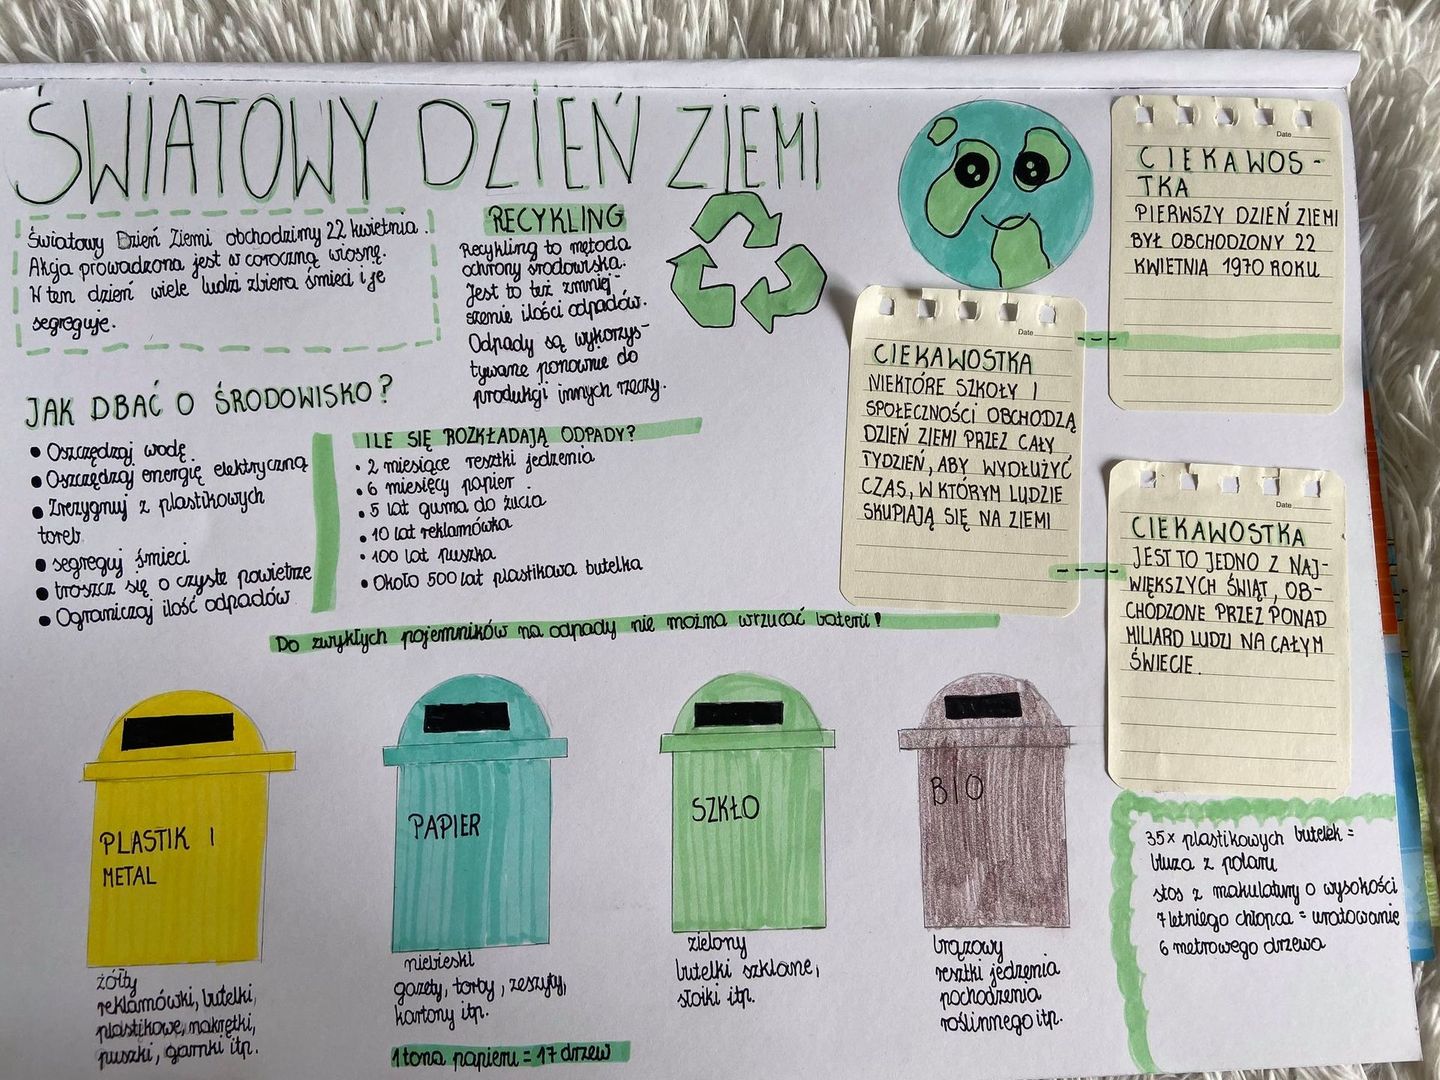 ŚWIATOWY DZIEŃ ZIEMI
Światowy Dzień Ziemi obchodzimy 22 kwietnia.
Akcja prowadzona jest w coroczną wiosnę.
W ten dzień wiele ludzi zbiera śmieci i je
segreguje.
RECYKLING
Recykling to metoda
ochrony środowiska.
Jest to też zmniej-
szenie ilości odpadów.
Odpady są wykorzys-
tywane ponownie do
produkcji innych rzeczy.
JAK DBAĆ O ŚRODOWISKO?
• Oszczędzaj wodę.
• Oszczędzaj energię elektryczną
• Zrezygnuj z plastikowych
toreb
• segreguj śmieci
• troszcz się o czyste powietrze
• Ograniczaj ilość odpadów
ILE SIĘ ROZKŁADAJĄ ODPADY?
• 2 miesiące resztki jedzenia
• 6 miesięcy papier.
• 5 lat guma do żucia
• 10 lat reklamówka
• 100 lat puszka
• Około 500 lat plastikowa butelka
Do zwykłych pojemników na odpady nie można wrzucać baterii!
Date
CIEKAWOS-
TKA
PIERWSZY DZIEŃ ZIEMI
BYŁ OBCHODZONY 22
KWIETNIA 1970 ROKU
Date
CIEKAWOSTKA
NIEKTÓRE SZKOŁY I
SPOŁECZNOŚCI OBCHODZĄ
DZIEŃ ZIEMI PRZEZ CAŁY
TYDZIEŃ, ABY WYDŁUŻYĆ
CZAS, W KTÓRYM LUDZIE
SKUPIAJĄ SIĘ NA ZIEMI
Date
CIEKAWOSTKA
JEST TO JEDNO Z NAJ-
WIĘKSZYCH ŚWIĄT, OB-
CHODZONE PRZEZ PONAD
MILIARD LUDZI NA CAŁYM
ŚWIECIE.
PLASTIK I
METAL
żółty
reklamówki, butelki,
plastikowe, nakrętki,
puszki, garnki itp.
PAPIER
niebieski
gazety, torby, zeszyty,
kartony itp.
1 tona papieru = 17 drzew
SZKŁO
zielony
butelki szklane,
słoiki itp.
BIO
brązowy
resztki jedzenia
pochodzenia
roślinnego itp.
35x plastikowych butelek =
bluza z polaru
stos z makulatury o wysokości
7 letniego chłopca = uratowanie
6 metrowego drzewa